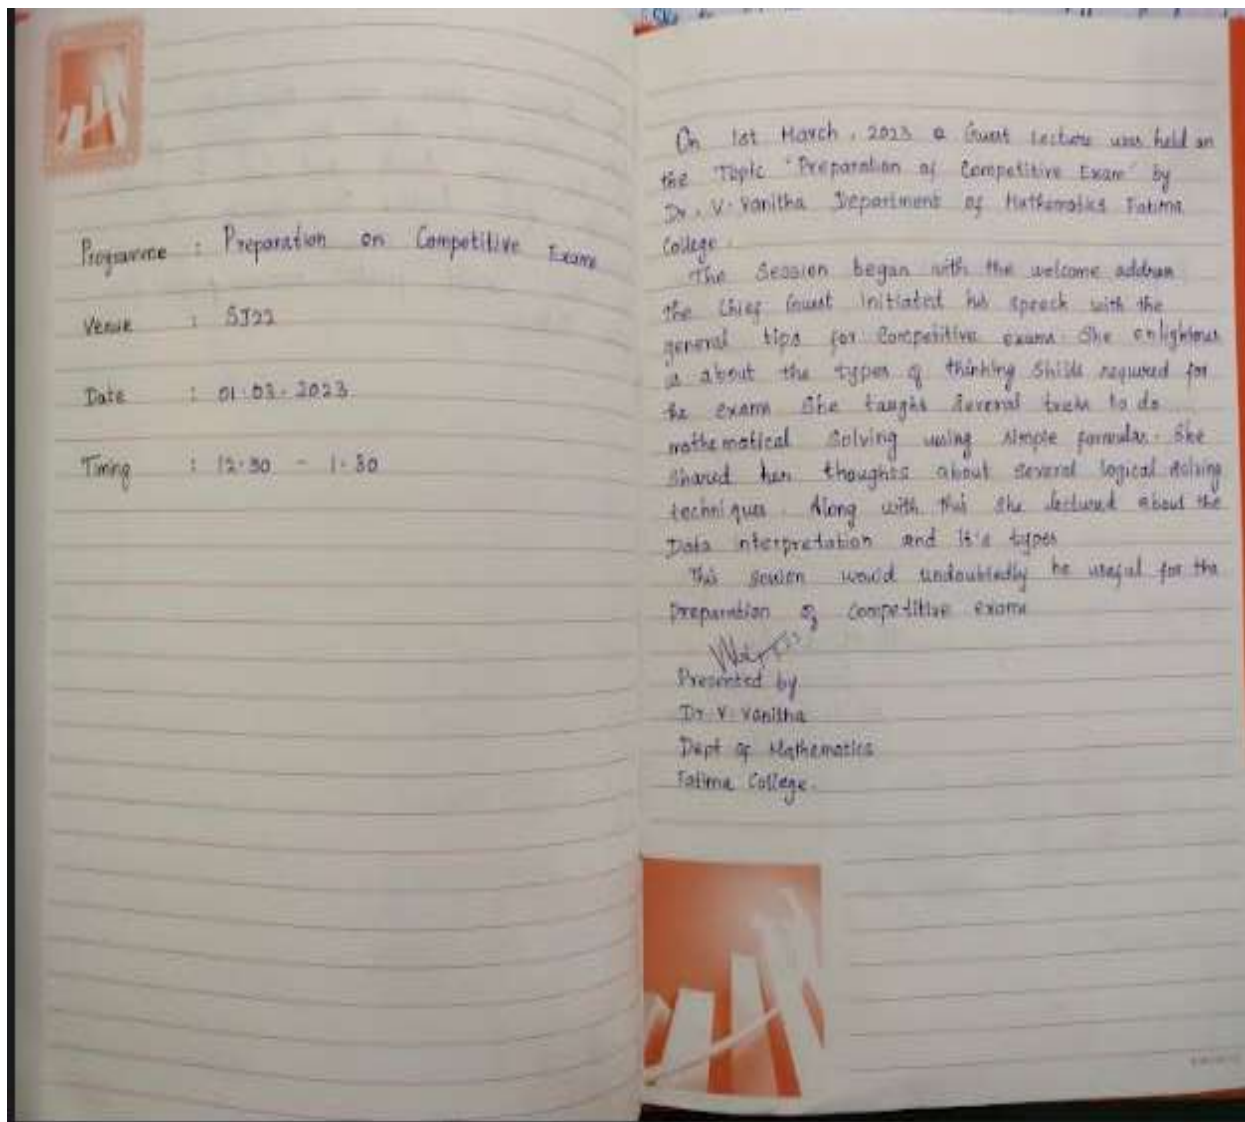 Programme : Preparation on Competitive Exams
Venue : SJ22
Date : 01.03.2023
Timing : 12.30 - 1.30
On 1st March, 2023 a Guest Lecture was held on
the Topic "Preparation of Competitive Exam" by
Dr. V. Vanitha Department of Mathematics Fatima
College.
The Session began with the welcome address
the Chief Guest initiated his speech with the
general tips for Competitive exams. She
about the types of thinking Skills required for
the exams She taught Several tricks to do
mathematical Solving using Simple formulas. She
Shared her thoughts about Several logical Solving
techniques. Along with this She lectured about the
Data interpretation and it's types
This session would undoubtedly be useful for the
Preparation of Competitive exams
Presented by
Dr. V. Vanitha
Dept of Mathematics
Fatima College.